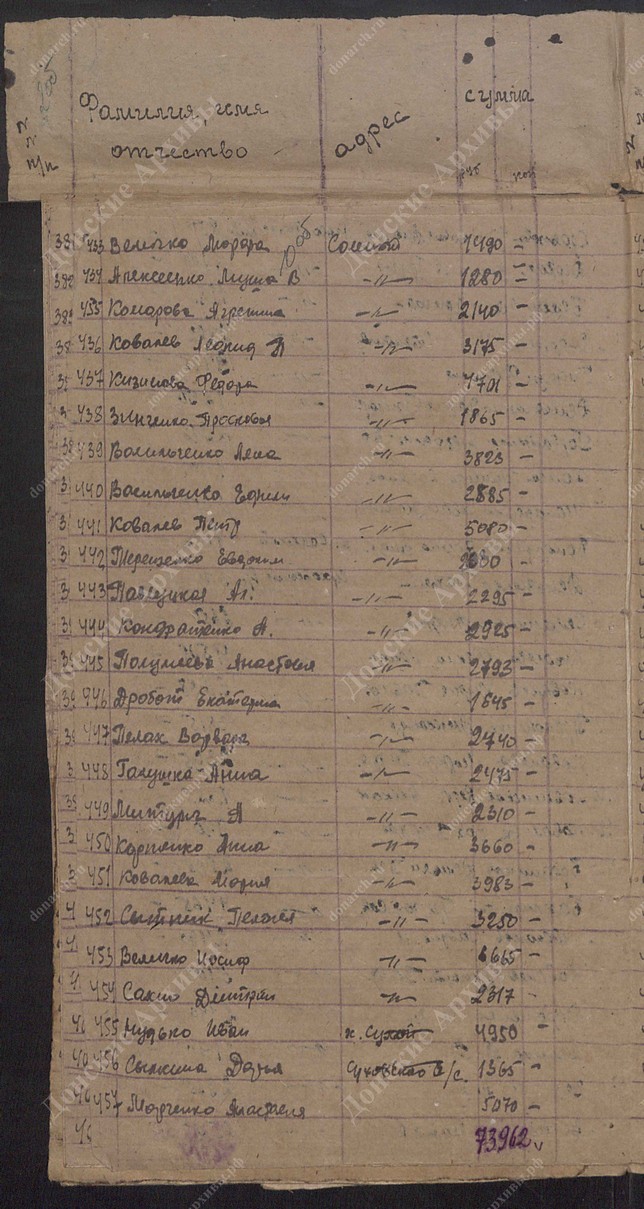 Фамилия, имя отчество адрес сумма
№№ п/п руб коп
433 Величко Марфа Совхоз 1490 –
434 Алексеенко Мария В –"– 1280 –
435 Комарова Агрепина –"– 2140 –
436 Ковалев Леонид П –"– 3175 –
437 Федора –"– 1701 –
438 Зинченко Просковья –"– 1865 –
439 Васильченко Лена –"– 3823 –
440 Васильченко –"– 2885 –
441 Ковалев Петр –"– 5080 –
442 Терещенко Евдоким –"–
443 Ал. –"– 2295 –
444 Кондратенко А. –"– 2925 –
445 Анастасия –"– 2793 –
446 Дробот Екатерина –"– 1645 –
447 Пелах Варвара –"– 2740 –
448 Галушка Анна –"– 2475 –
449 А –"– 2310 –
450 Карпенко Анна –"– 3660 –
451 Ковалева Мария –"– 3983 –
452 Сытник Пелагея –"– 3250 –
453 Величко Иосиф –"– 6665 –
454 Дмитрий –"– 2317 –
455 Нудько Иван х. Сухой 4950 –
456 Дарья Суховского с/с. 1365 –
457 Марченко Анастасия 5070 –
73962